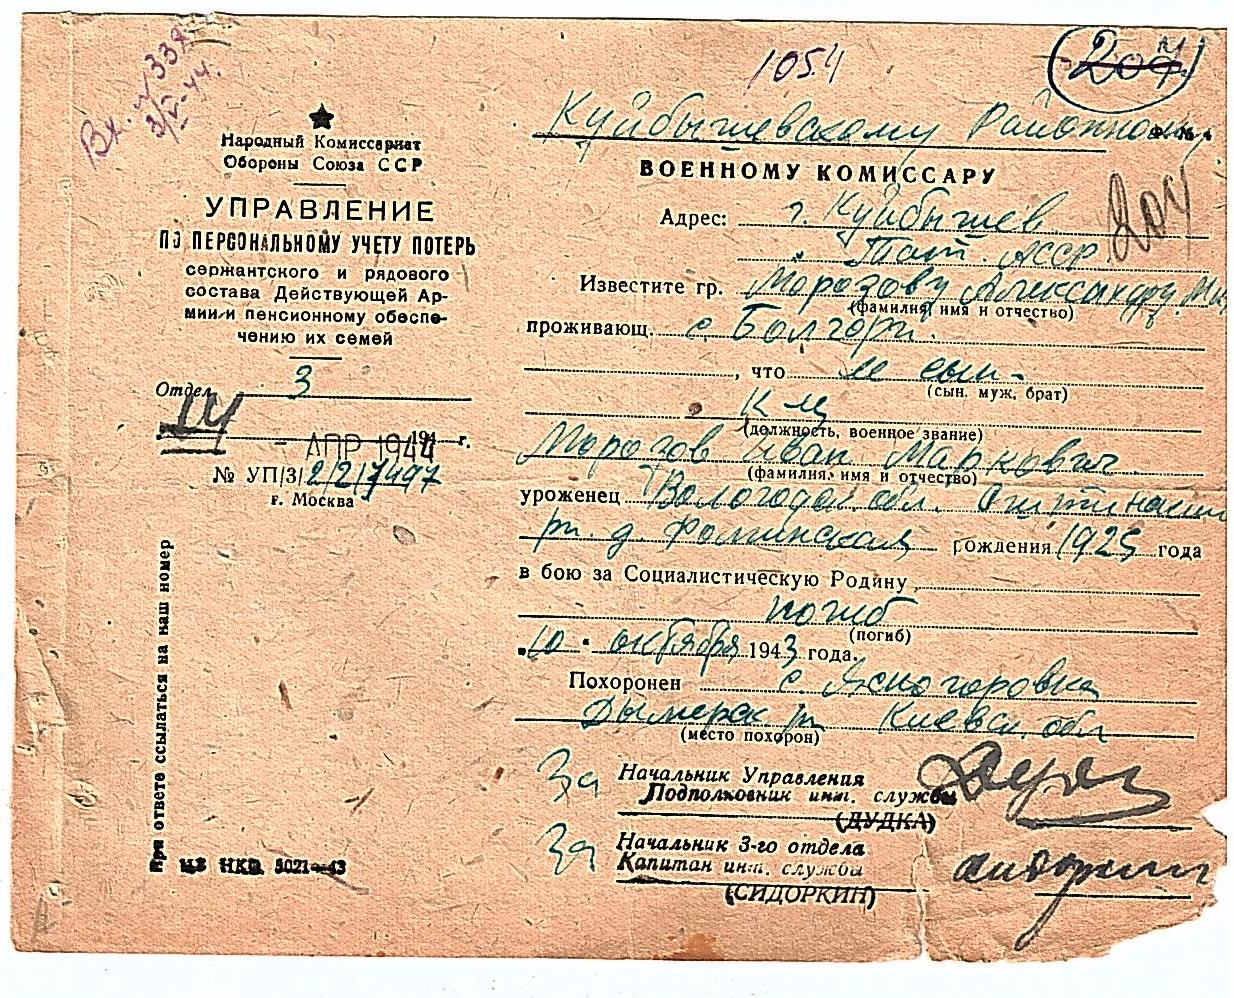 Вх. № 338
3/V-44.
1054
204
Народный Комиссариат
Обороны Союза ССР
УПРАВЛЕНИЕ
ПО ПЕРСОНАЛЬНОМУ УЧЕТУ ПОТЕРЬ
сержантского и рядового
состава Действующей Ар-
мии и пенсионному обеспе-
чению их семей
Отдел 3
14 - АПР 1944 194 г.
№ УП/3/2/2/7497
г. Москва
При ответе ссылаться на наш номер
5021—43
Куйбышевскому Районному
ВОЕННОМУ КОМИССАРУ
204
Адрес: г. Куйбышев
Тат. АССР
Известите гр. Морозову Александру
(фамилия, имя и отчество)
проживающ. с. Болгары
, что сын
(сын, муж, брат)
к-ц
(должность, военное звание)
Морозов Иван Маркович
(фамилия, имя и отчество)
уроженец Вологодск. обл.
д. Фоминская рождения 1925 года
в бою за Социалистическую Родину
погиб
(погиб)
10 октября 1943 года.
Похоронен с. Ясногоровка
Дымерск. р-н Киевск. обл
(место похорон)
За Начальник Управления
Подполковник инт. службы
(ДУДКА)
За Начальник 3-го отдела
Капитан инт. службы
(СИДОРКИН)